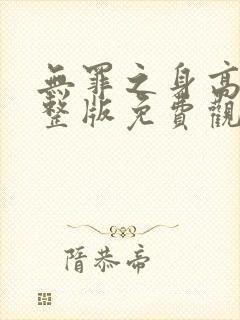 無罪之身高
整版免費觀
隋恭帝